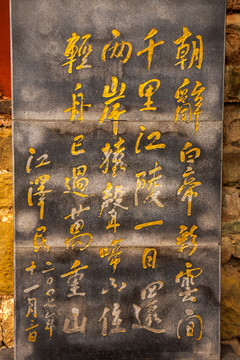 朝辭白帝彩雲間
千里江陵一日還
兩岸猿聲啼不住
輕舟已過萬重山
江澤民
二〇〇七年
十一月二日